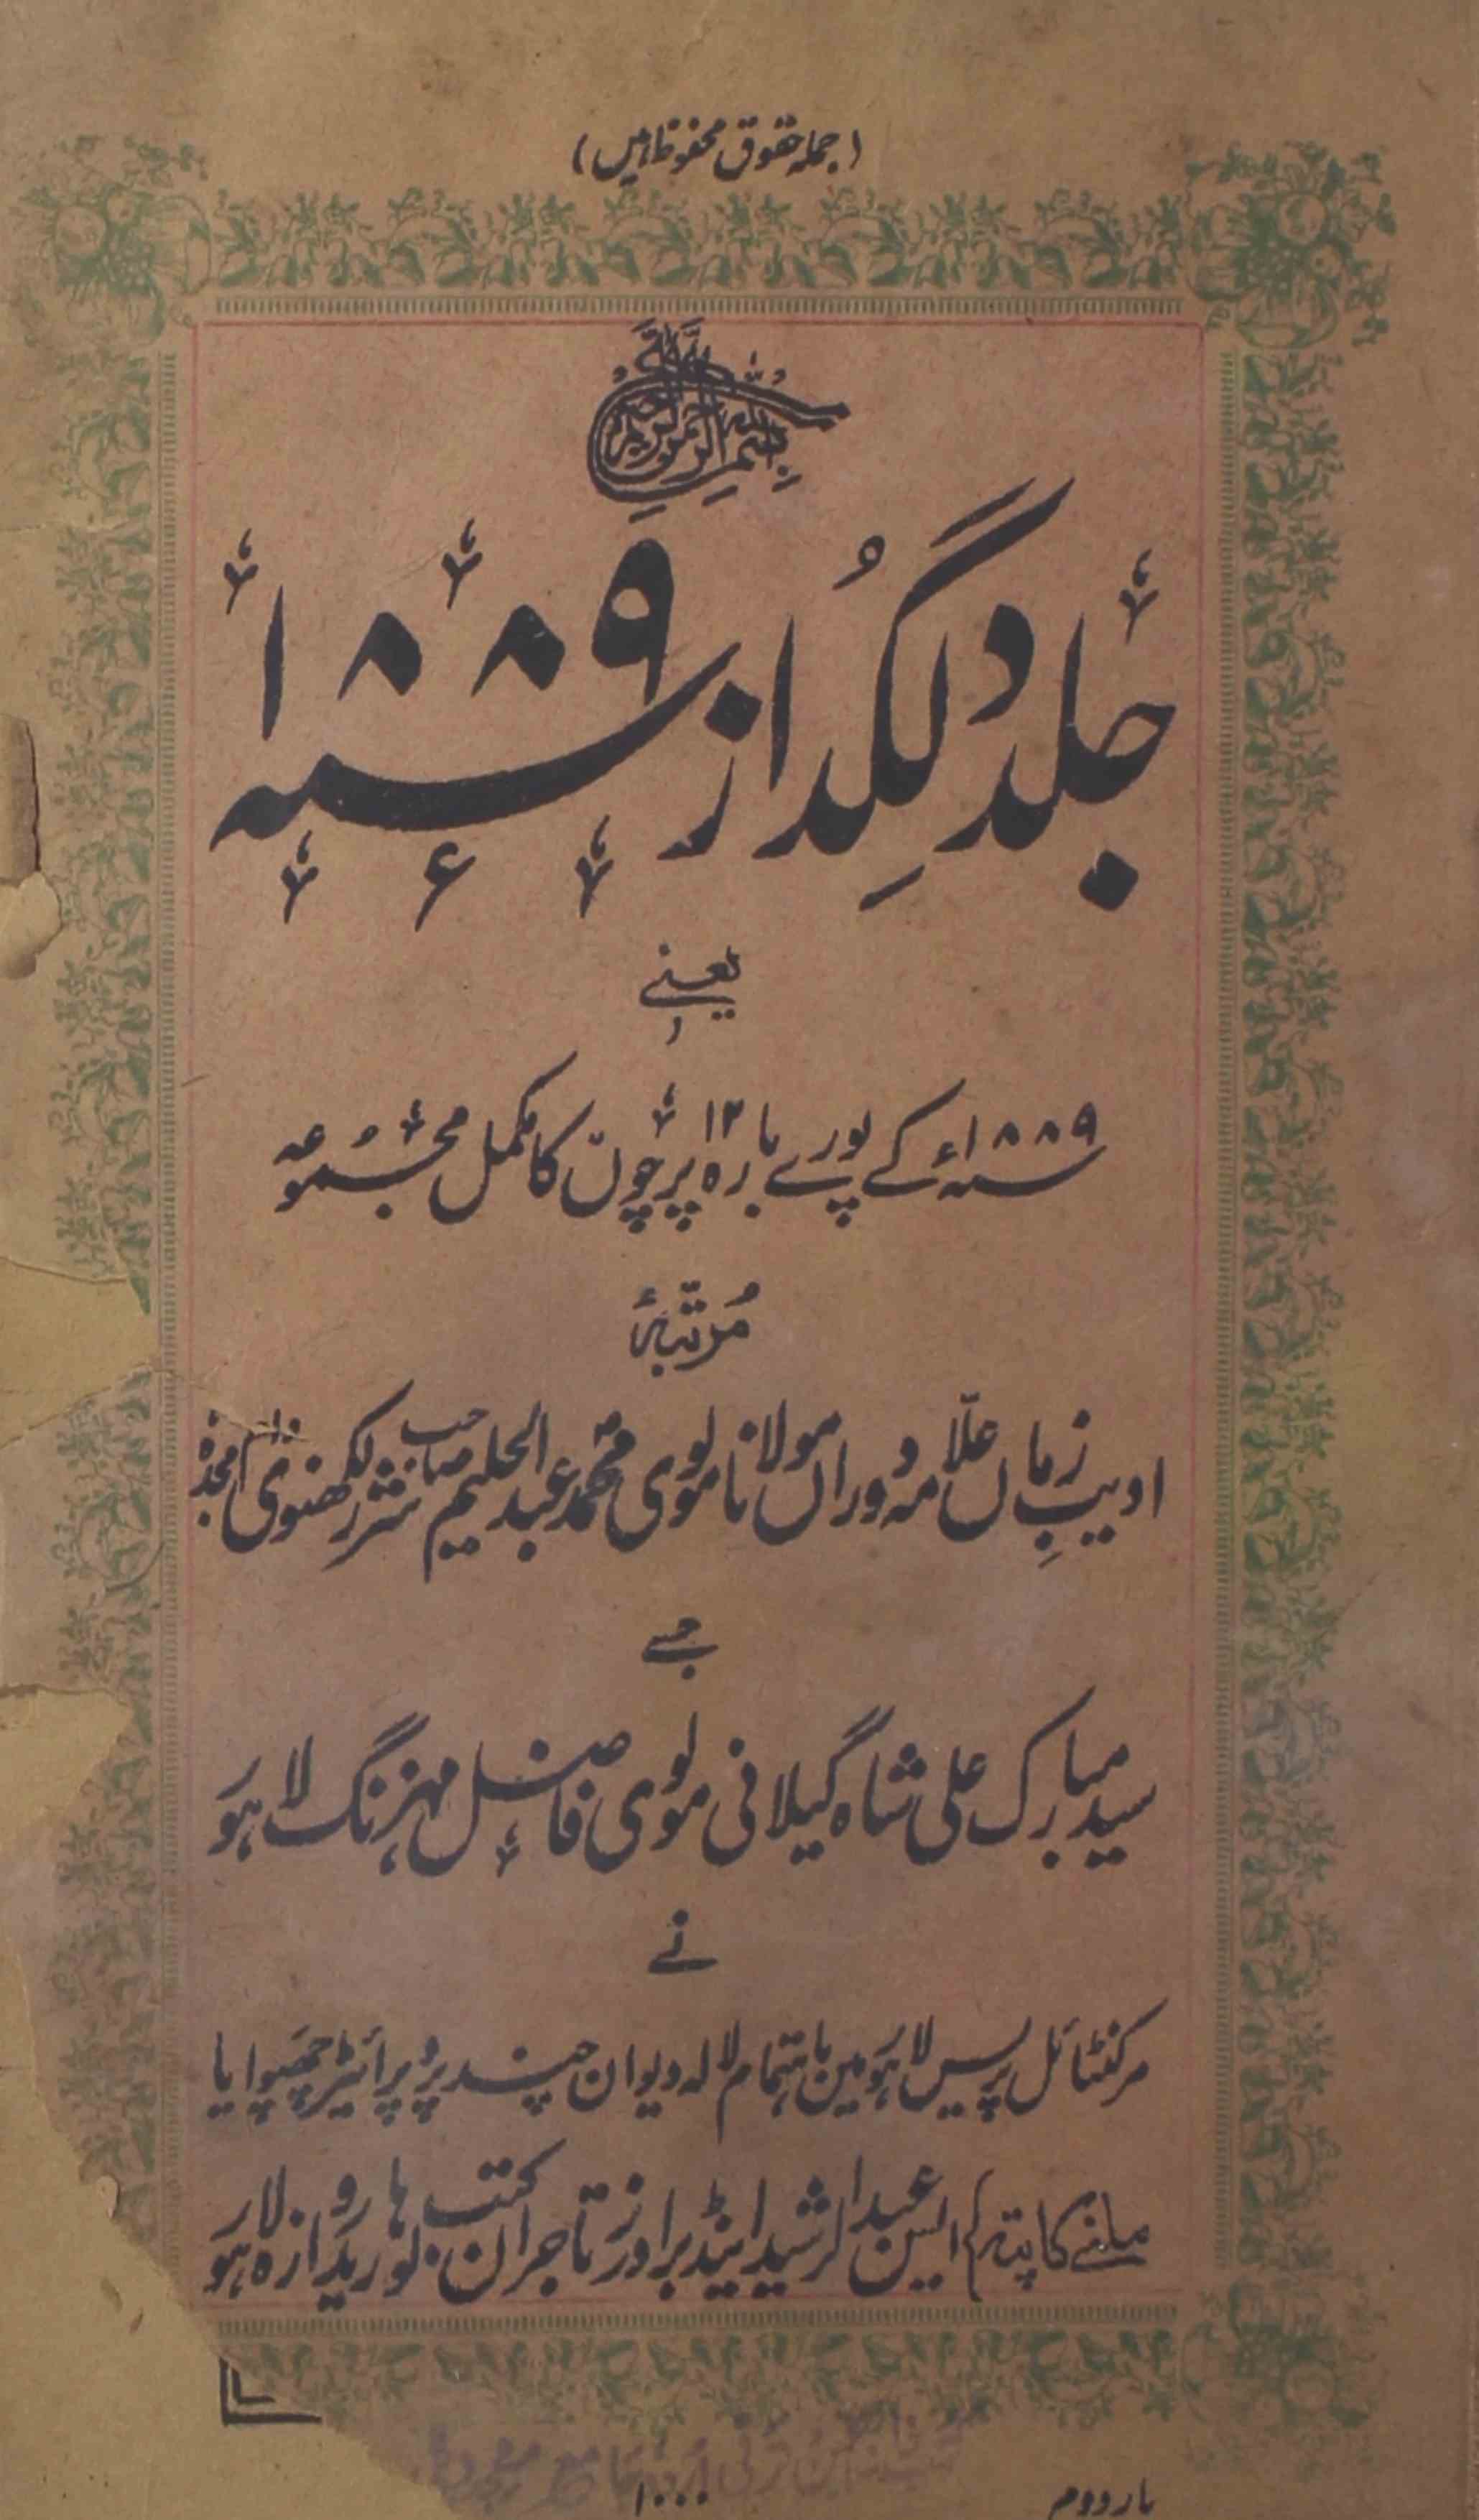 (جملہ حقوق محفوظ ہیں)
بسم اللہ الرحمن الرحیم
جلد دلگداز سنہ ۱۸۸۹ء
یعنے
سنہ ۱۸۸۹ء کے پورے بارہ ۱۲ پرچوں کا مکمل مجموعہ
مرتبہٗ
ادیبِ زماں علّامہ دوراں مولانا مولوی محمد عبدالحلیم صاحب شرر لکھنوی دام مجدہٗ
جسے
سید مبارک علی شاہ گیلانی مولوی فاضل مہزنگ لاہور
نے
مرکنٹائل پریس لاہور میں باہتمام لالہ دیوان چند پروپرائیٹر چھپوایا
ملنے کا پتہ ایس عبدالرشید اینڈ برادرز تاجران کتب لوہاری دروازہ لاہور
بار دوم
۱۰۰۰